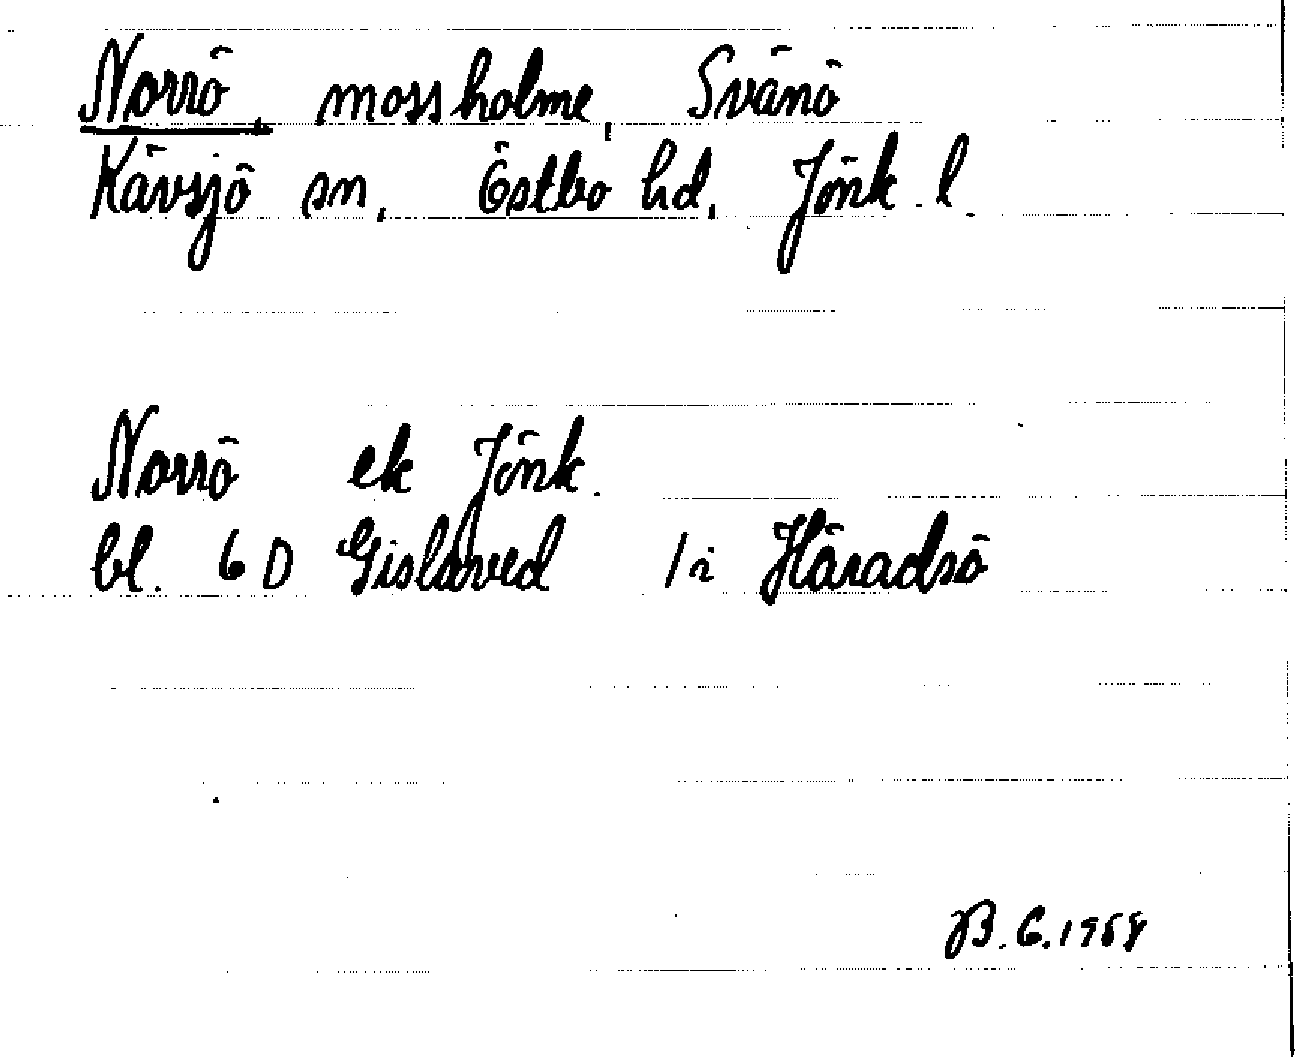 Norrö, mossholme, Svänö
Kävsjö sn, Östbo hd, Jönk. l.
Norrö ek Jönk.
bl. 6 D Gislaved 1i Häradsö
B.G. 1968